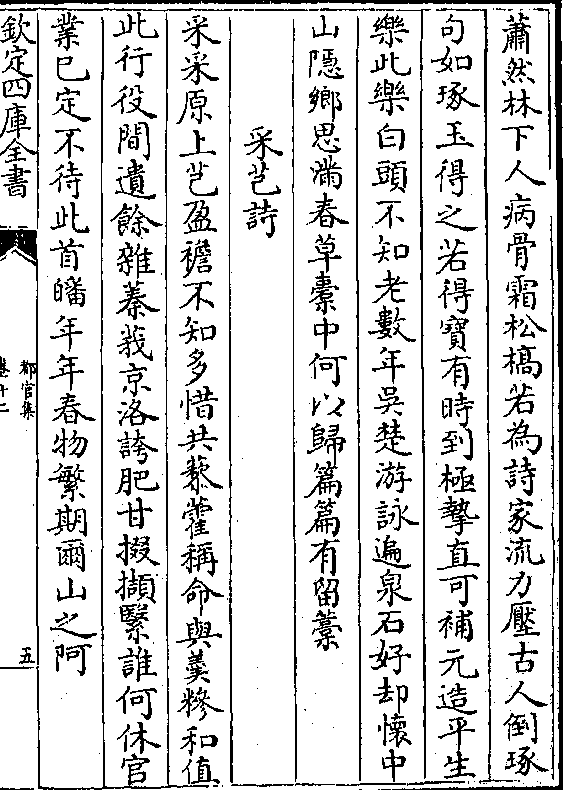 蕭然林下人病骨霜松槁若為詩家流力壓古人倒琢
句如琢玉得之若得寶有時到極摯直可補元造平生
樂此樂白頭不知老數年吳楚游詠遍泉石好却懷中
山隱鄉思滿春草橐中何以歸篇篇有留藁
采芑詩
采采原上芑盈襜不知多惜共藜藿稱命與羹糝和值
此行役間遺餘雜蓁莪京洛誇肥甘掇擷繄誰何休官
業已定不待此首皤年年春物繁期爾山之阿
欽定四庫全書
都官集
卷十二
五